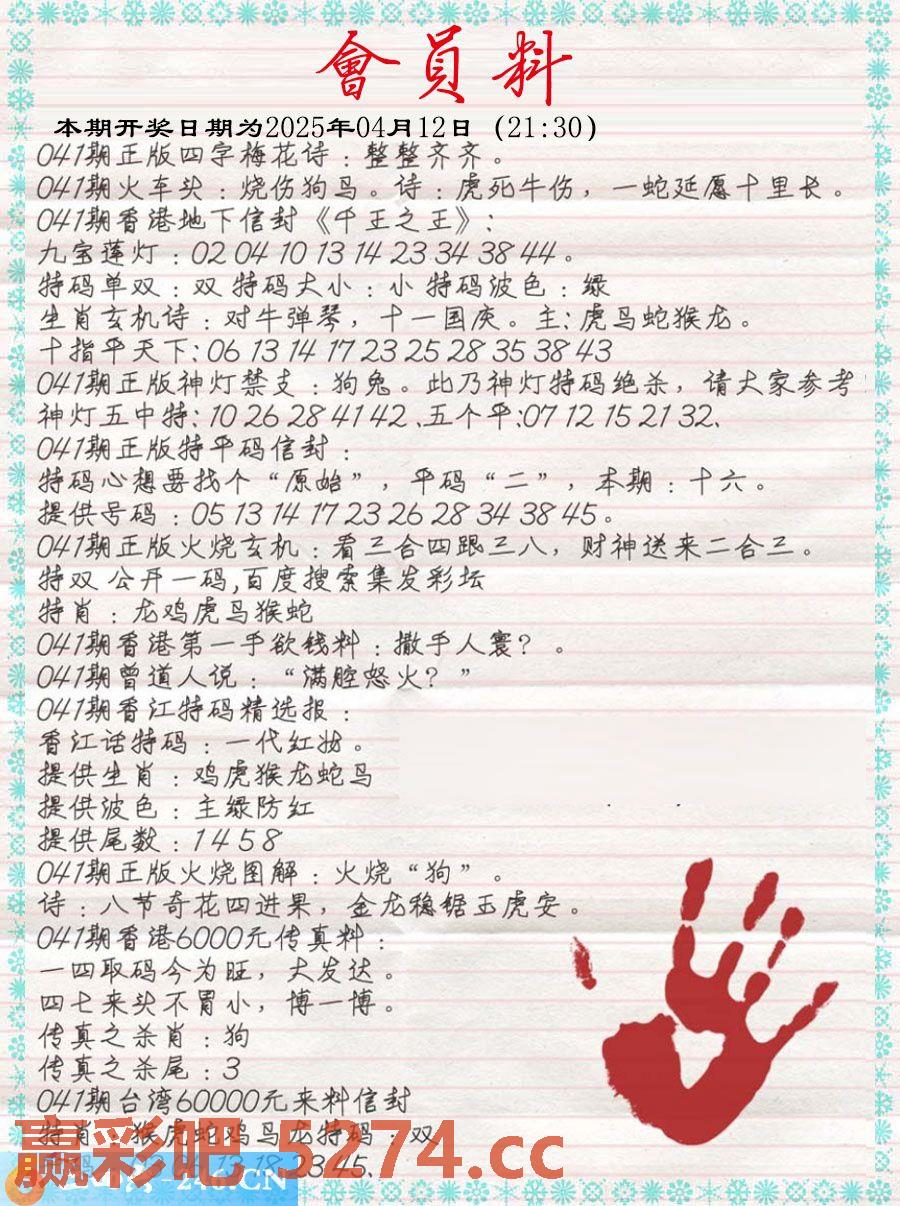 會員料
本期开奖日期为2025年04月12日（21:30）
041期正版四字梅花诗：整整齐齐。
041期火车头：烧伤狗鸟。诗：虎死牛伤，一蛇延愿十里长。
041期香港地下信封《千王之王》：
九宝莲灯：02 04 10 13 14 23 34 38 44。
特码单双：双 特码大小：小 特码波色：绿
生肖玄机诗：对牛弹琴，十一国庆。主：虎鸟蛇猴龙。
十指平天下：06 13 14 17 23 25 28 35 38 43
041期正版神灯禁支：狗兔。此乃神灯特码绝杀，请大家参考
神灯五中特：10 26 28 41 42 、五个平：07 12 15 21 32、
041期正版特平码信封：
特码心想要找个“原始”，平码“二”，本期：十六。
提供号码：05 13 14 17 23 26 28 34 38 45。
041期正版火烧玄机：看三合四跟三八，财神送来二合三。
特双 公开一码,百度搜索集发彩坛
特肖：龙鸡虎鸟猴蛇
041期香港第一手欲钱料：撒手人寰？。
041期曾道人说：“满腔怒火？”
041期香江特码精选报：
香江话特码：一代红妆。
提供生肖：鸡虎猴龙蛇鸟
提供波色：主绿防红
提供尾数：1 4 5 8
041期正版火烧图解：火烧“狗”。
诗：八节奇花四进果，金龙稳锯玉虎安。
041期香港6000元传真料：
一四取码今为旺，大发达。
四七来头不胃小，博一博。
传真之杀肖：狗
传真之杀尾：3
041期台湾60000元来料信封
特肖：猴虎蛇鸡鸟龙特码：双
赢彩吧-5274.cc
13 18 23 45、